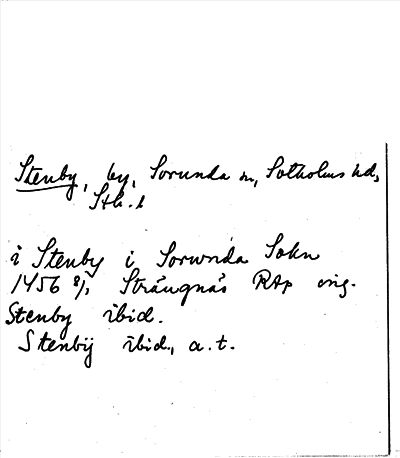 Stenby, by, Sorunda sn, Sotholms hd,
Sth. l
i Stenby i Sorwnda Sokn
1456 8/1 Strängnäs RAp orig.
Stenby ibid.
Stenbÿ ibid., a.t.